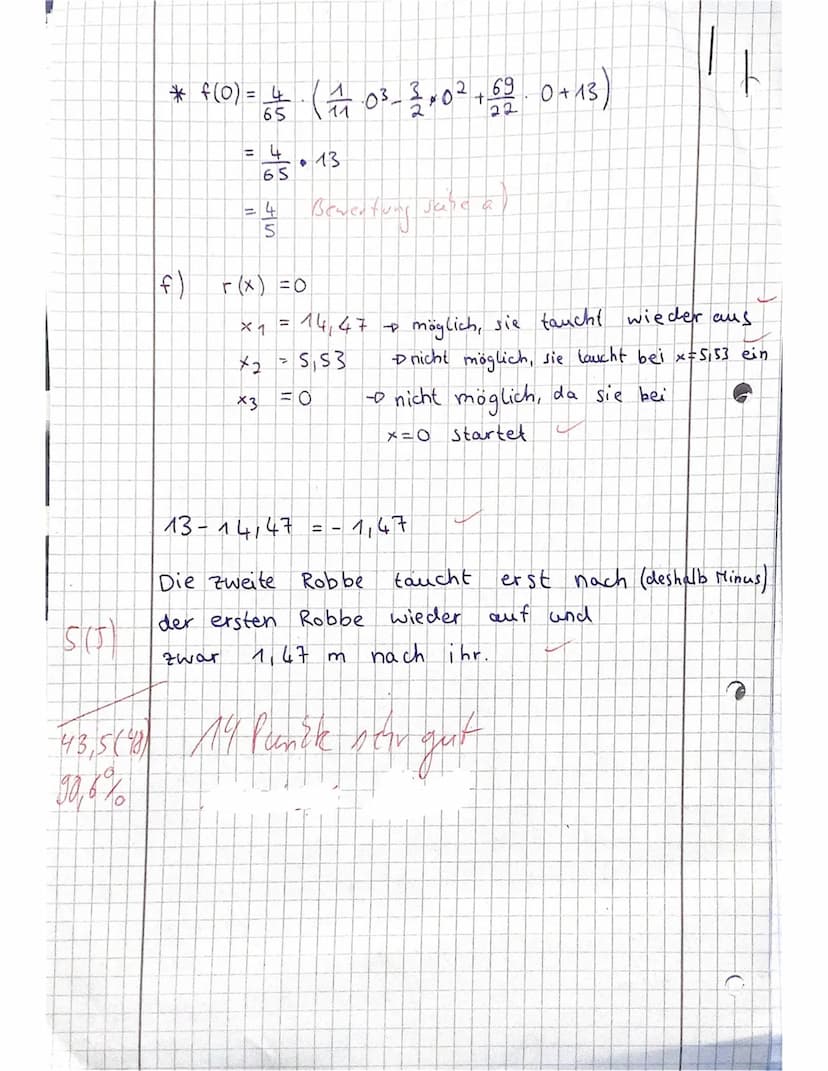 * f(0) = 4/65 · (1/11 · 0³ - 3/2 · 0² + 69/22 · 0 + 13)
= 4/65 · 13
= 4/5 Bewertung siehe a)
f) r(x) = 0
x₁ = 14,47 → möglich, sie taucht wieder aus ✓
x₂ = 5,53 → nicht möglich, sie taucht bei x=5,53 ein ✓
x₃ = 0 → nicht möglich, da sie bei
x=0 startet ✓
13 - 14,47 = - 1,47 ✓
Die zweite Robbe taucht erst nach (deshalb Minus)
der ersten Robbe wieder auf und
5(5)
zwar 1,47 m nach ihr. ✓
43,5(48) 14 Punkte sehr gut
90,6%